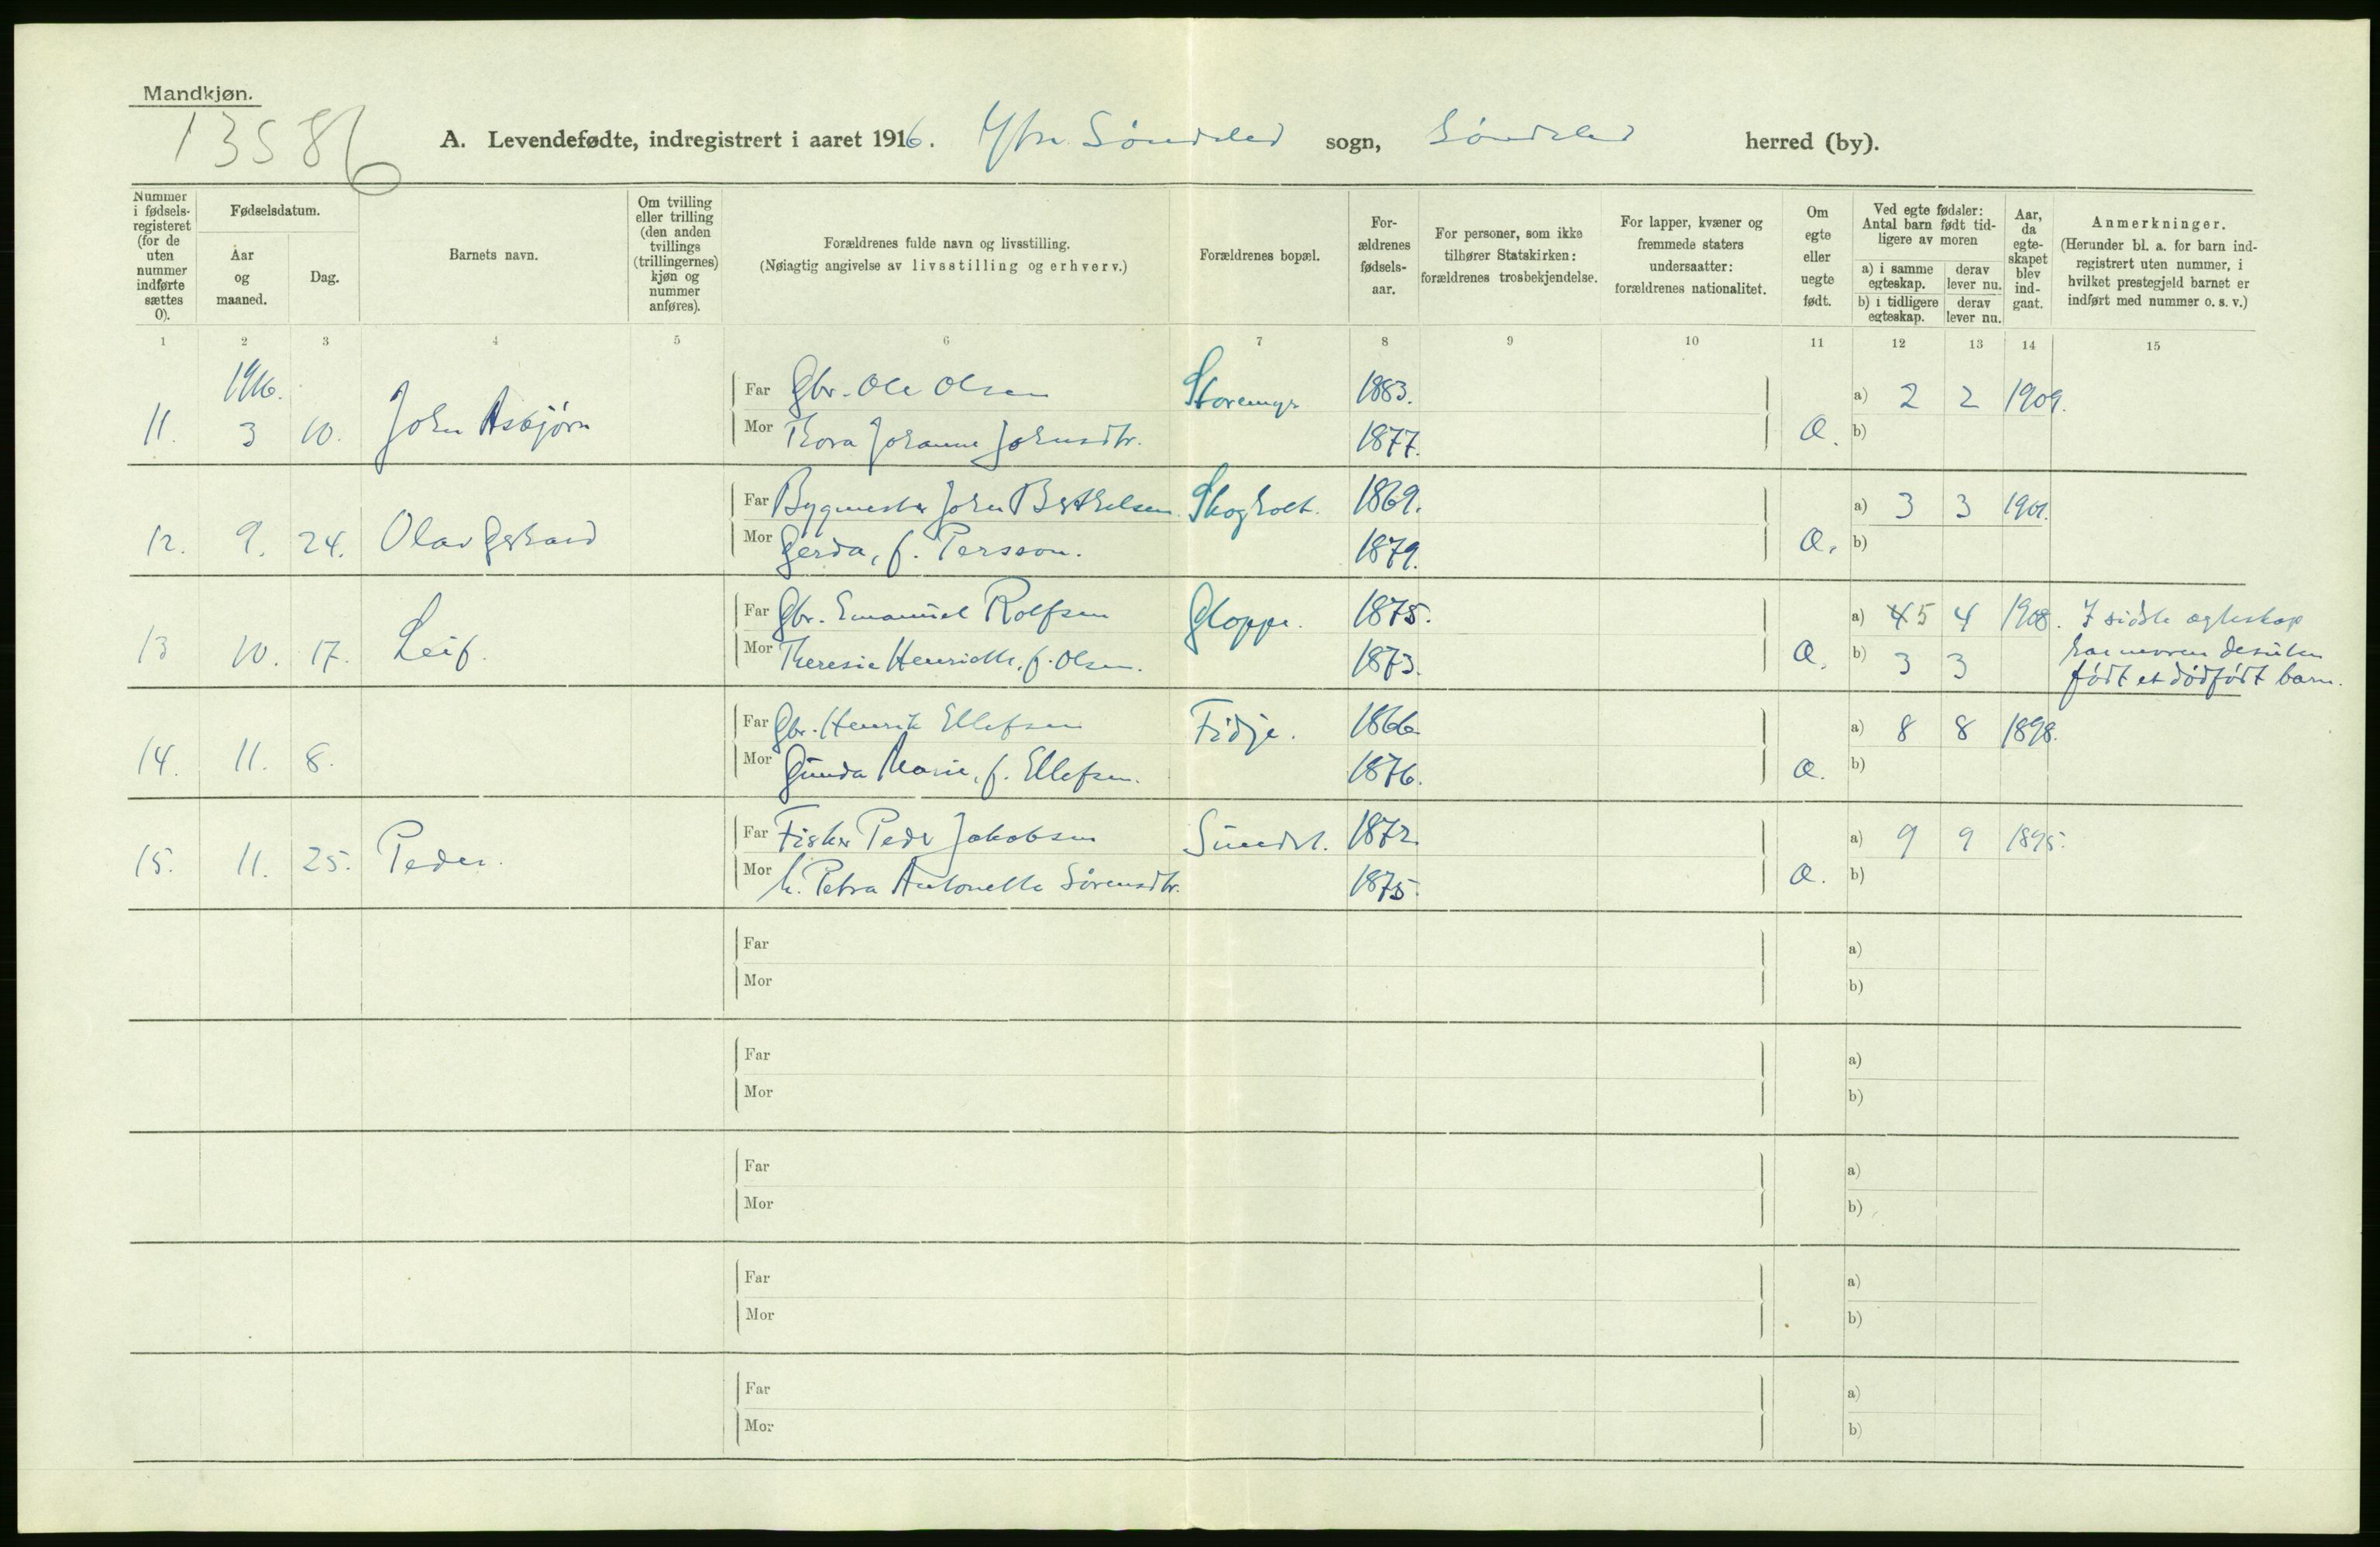 Mandkjøn.
13586
A. Levendefødte, indregistrert i aaret 1916. Ytre Søndeled sogn, Søndeled herred (by).
Nummer i fødsels-registeret (for de uten nummer indførte sættes 0).
Fødselsdatum.
Aar og maaned.
Dag.
Barnets navn.
Om tvilling eller trilling (den anden tvillings (trillingernes) kjøn og nummer anføres).
Forældrenes fulde navn og livsstilling.
(Nøiagtig angivelse av livsstilling og erhverv.)
Forældrenes bopæl.
For-ældrenes fødsels-aar.
For personer, som ikke tilhører Statskirken: forældrenes trosbekjendelse.
For lapper, kvæner og fremmede staters undersaatter: forældrenes nationalitet.
Om egte eller uegte født.
Ved egte fødsler: Antal barn født tid-ligere av moren
a) i samme egteskap. derav lever nu.
b) i tidligere egteskap. derav lever nu.
Aar, da egte-skapet blev ind-gaat.
Anmerkninger.
(Herunder bl. a. for barn ind-registrert uten nummer, i hvilket prestegjeld barnet er indført med nummer o. s. v.)
1 2 3 4 5 6 7 8 9 10 11 12 13 14 15
1916.
Far Gbr. Ole Olsen Storemyr 1883. a) 2 2 1909.
11. 3 10. John Asbjørn Mor Thora Johanne Johnsdtr. 1877. Æ. b)
Far Bygmester John Berthelsen Skogholt. 1869. a) 3 3 1901.
12. 9. 24. Olav Gerhard Mor Gerda, f. Persson. 1879. Æ. b)
Far Gbr. Emanuel Rolfsen Gloppe. 1875. a) 4 5 4 1908. I sidste ægteskap
13 10. 17. Leif. Mor Theresie Henriette, f. Olsen. 1873. Æ. b) 3 3 har moren desuten
født et dødfødt barn.
Far Gbr. Henrik Ellefsen Fidje. 1866 a) 8 8 1898.
14. 11. 8. Mor Gunda Marie, f. Ellefsen. 1876. Æ. b)
Far Fisker Peder Jakobsen Sundet. 1872. a) 9 9 1895.
15. 11. 25. Peder. Mor h. Petra Antonette Sørensdtr. 1875. Æ. b)
Far a)
Mor b)
Far a)
Mor b)
Far a)
Mor b)
Far a)
Mor b)
Far a)
Mor b)